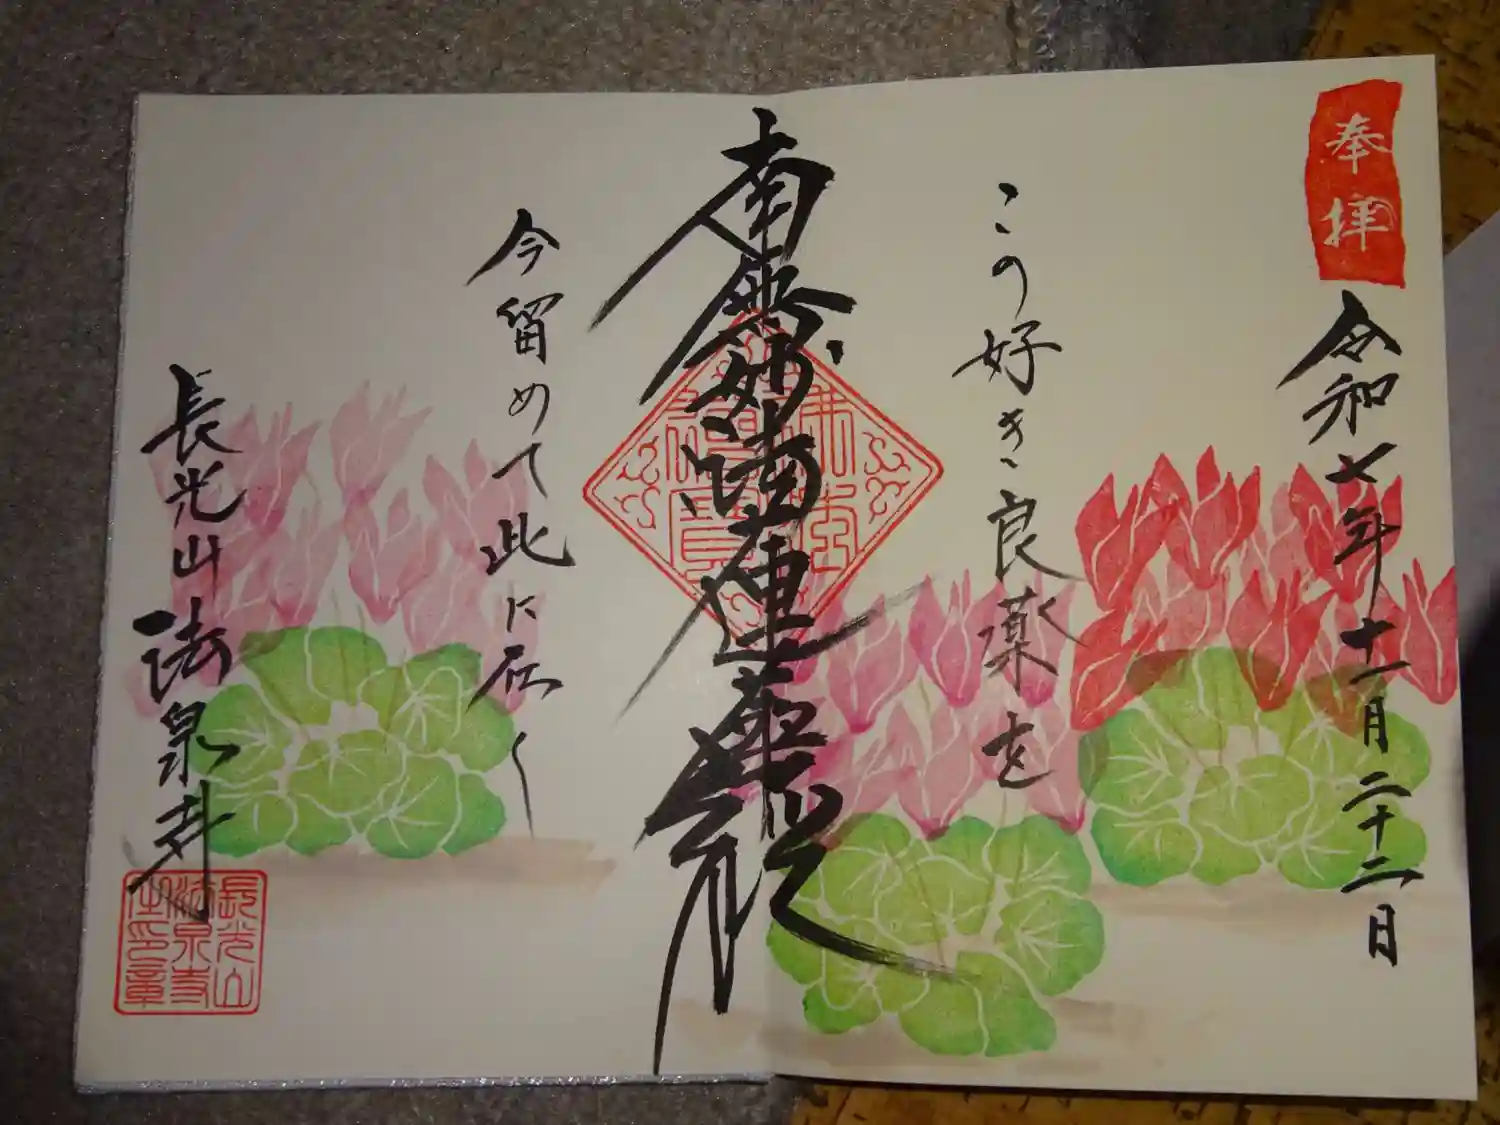 奉拝
令和七年十一月二十二日
この好き良薬を
南無妙法蓮華経
今留めて此に在く
長光山 法泉寺
長光山
法泉寺